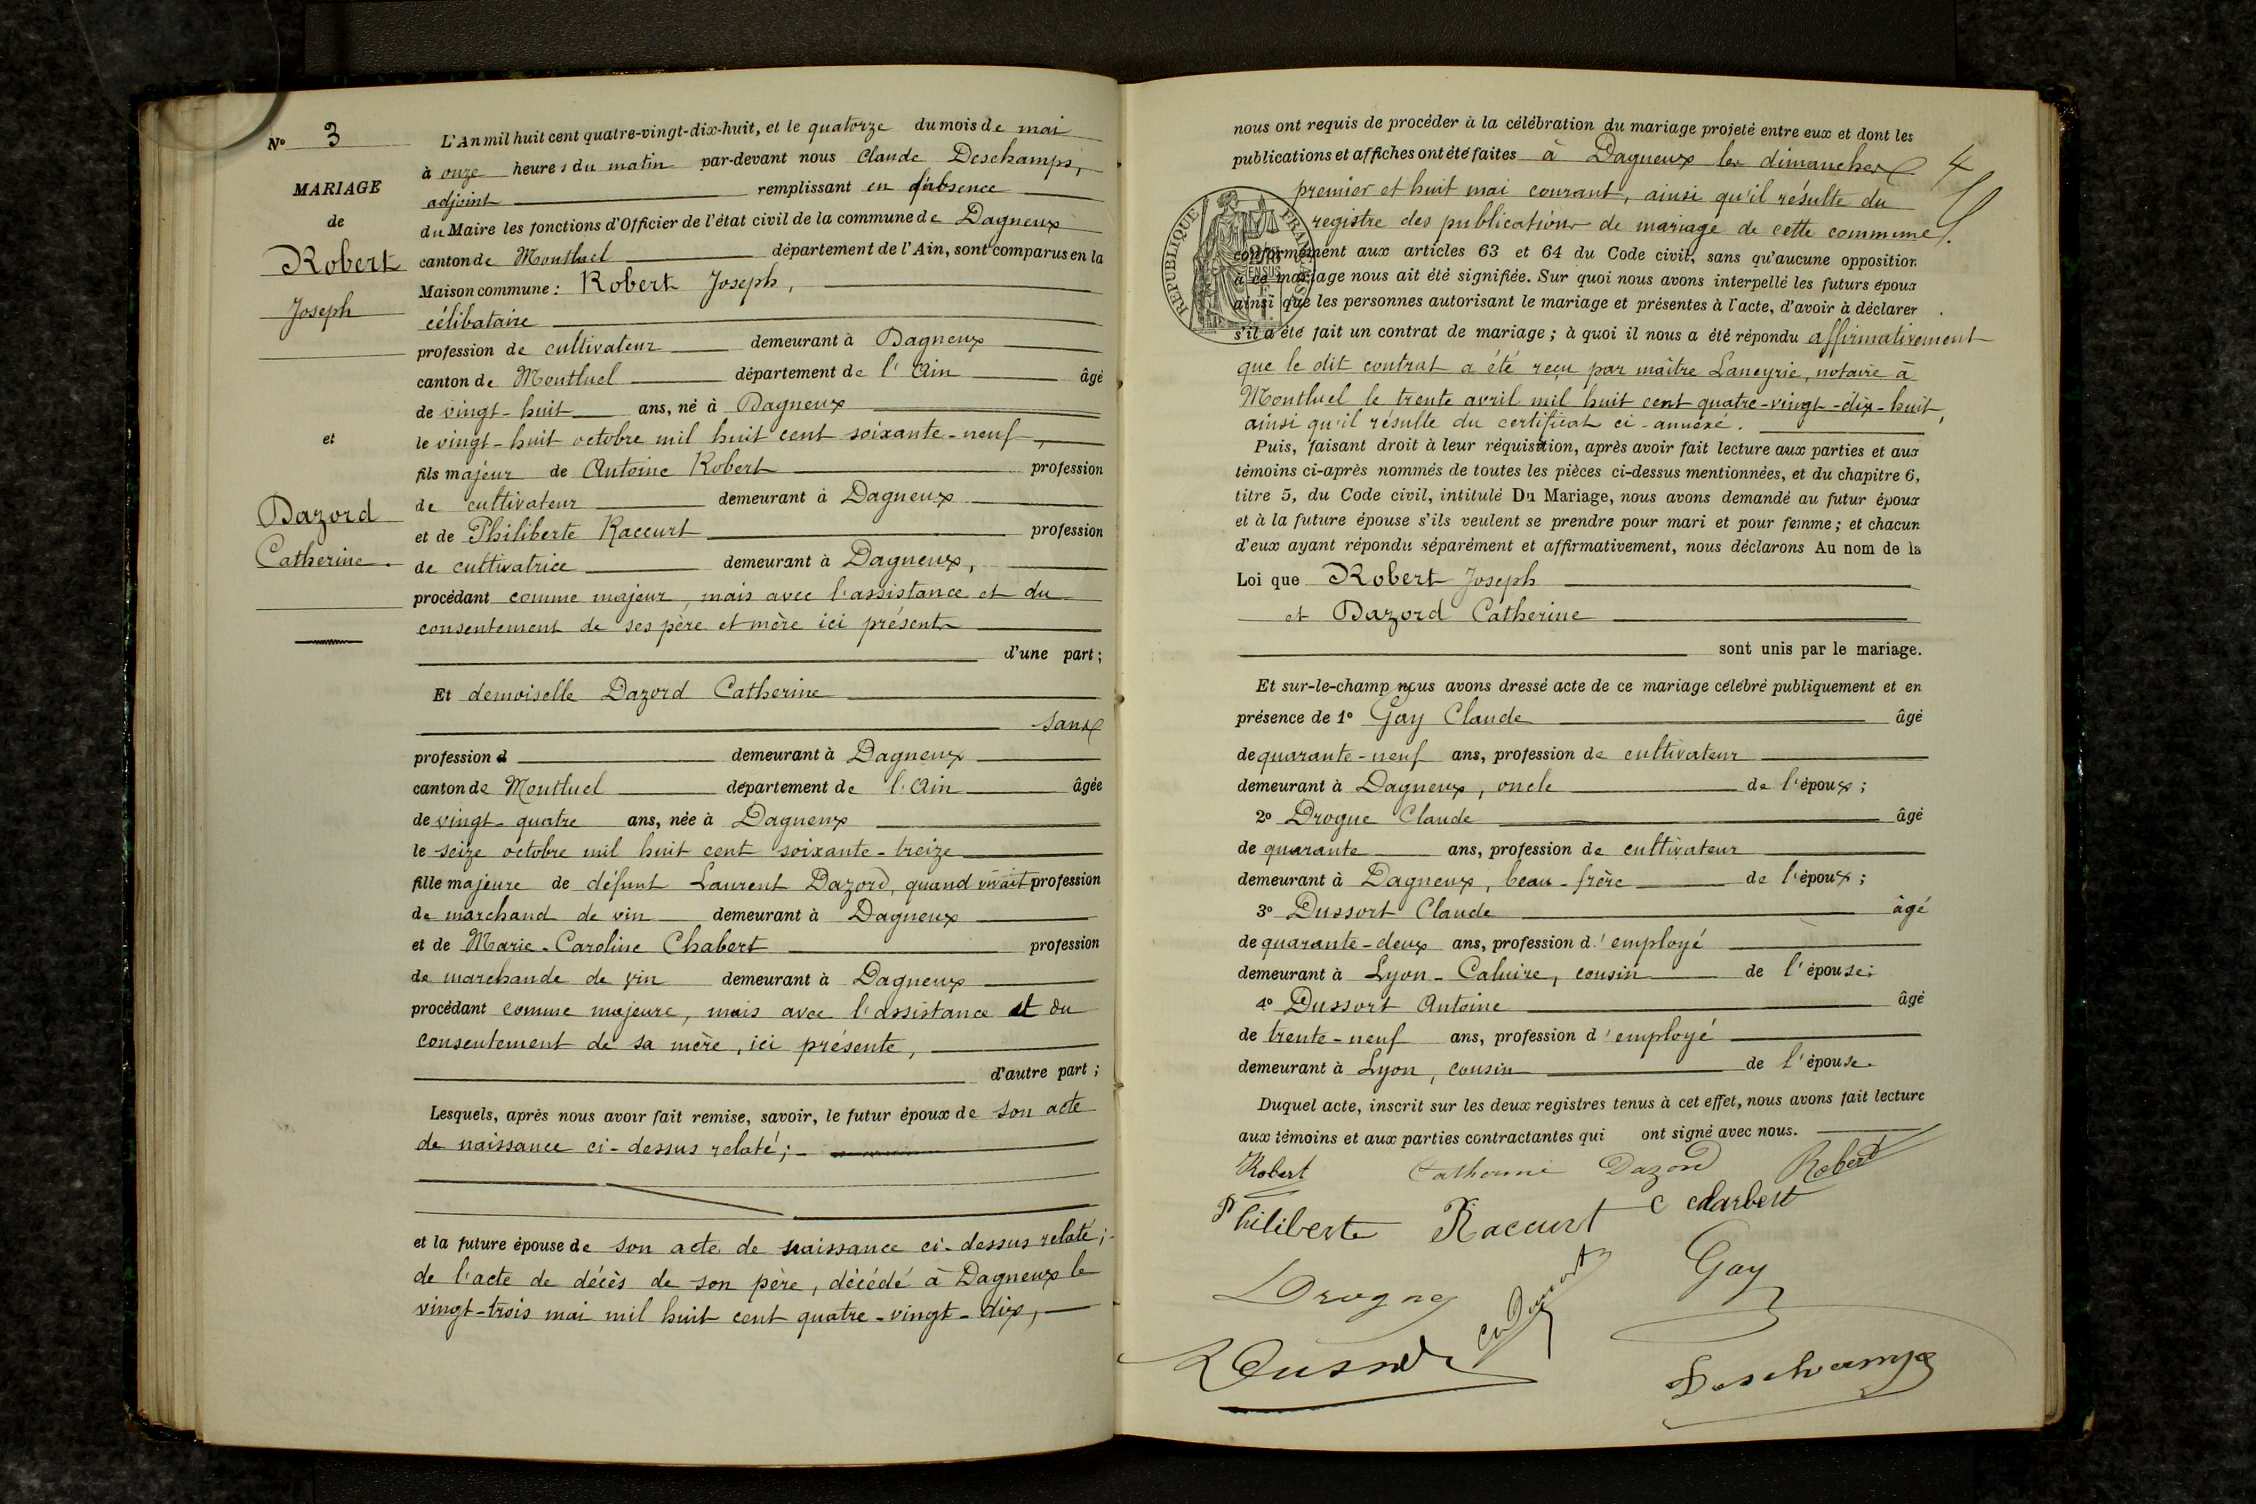 N° 3
MARIAGE
de
Robert
Joseph
et
Dazord
Catherine.
L'An mil huit cent quatre-vingt-dix-huit, et le quatorze du mois de mai
à onze heures du matin par-devant nous Claude Deschamps,
adjoint remplissant en l'absence
du Maire les fonctions d'Officier de l'état civil de la commune de Dagneux
canton de Montluel département de l'Ain, sont comparus en la
Maison commune : Robert Joseph,
célibataire
profession de cultivateur demeurant à Dagneux
canton de Montluel département de l'Ain âgé
de vingt-huit ans, né à Dagneux
le vingt-huit octobre mil huit cent soixante-neuf,
fils majeur de Antoine Robert profession
de cultivateur demeurant à Dagneux
et de Philiberte Raccurt profession
de cultivatrice demeurant à Dagneux,
procédant comme majeur, mais avec l'assistance et du
consentement de ses père et mère ici présents
d'une part ;
Et demoiselle Dazord Catherine
sans
profession d demeurant à Dagneux
canton de Montluel département de l'Ain âgée
de vingt-quatre ans, née à Dagneux
le seize octobre mil huit cent soixante-treize
fille majeure de défunt Laurent Dazord, quand vivait profession
de marchand de vin demeurant à Dagneux
et de Marie-Caroline Chabert profession
de marchande de vin demeurant à Dagneux
procédant comme majeure, mais avec l'assistance et du
consentement de sa mère, ici présente,
d'autre part ;
Lesquels, après nous avoir fait remise, savoir, le futur époux de son acte
de naissance ci-dessus relaté ;
et la future épouse de son acte de naissance ci-dessus relaté ;
de l'acte de décès de son père, décédé à Dagneux le
vingt-trois mai mil huit cent quatre-vingt-dix,
nous ont requis de procéder à la célébration du mariage projeté entre eux et dont les
publications et affiches ont été faites à Dagneux les dimanches 4
premier et huit mai courant, ainsi qu'il résulte du
registre des publications de mariage de cette commune.
RÉPUBLIQUE FRANÇAISE
conformément aux articles 63 et 64 du Code civil, sans qu'aucune opposition
à ce mariage nous ait été signifiée. Sur quoi nous avons interpellé les futurs époux
ainsi que les personnes autorisant le mariage et présentes à l'acte, d'avoir à déclarer
s'il a été fait un contrat de mariage ; à quoi il nous a été répondu affirmativement
que le dit contrat a été reçu par maître Laneyrie, notaire à
Montluel le trente avril mil huit cent quatre-vingt-dix-huit,
ainsi qu'il résulte du certificat ci-annexé.
Puis, faisant droit à leur réquisition, après avoir fait lecture aux parties et aux
témoins ci-après nommés de toutes les pièces ci-dessus mentionnées, et du chapitre 6,
titre 5, du Code civil, intitulé Du Mariage, nous avons demandé au futur époux
et à la future épouse s'ils veulent se prendre pour mari et pour femme ; et chacun
d'eux ayant répondu séparément et affirmativement, nous déclarons Au nom de la
Loi que Robert Joseph
et Dazord Catherine
sont unis par le mariage.
Et sur-le-champ nous avons dressé acte de ce mariage célébré publiquement et en
présence de 1° Gay Claude âgé
de quarante-neuf ans, profession de cultivateur
demeurant à Dagneux, oncle de l'époux ;
2° Drogue Claude âgé
de quarante ans, profession de cultivateur
demeurant à Dagneux, beau-frère de l'époux ;
3° Dussort Claude âgé
de quarante-deux ans, profession d'employé
demeurant à Lyon-Caluire, cousin de l'épouse ;
4° Dussort Antoine âgé
de trente-neuf ans, profession d'employé
demeurant à Lyon, cousin de l'épouse.
Duquel acte, inscrit sur les deux registres tenus à cet effet, nous avons fait lecture
aux témoins et aux parties contractantes qui ont signé avec nous.
Robert Catherine Dazord Robert
Philiberte Raccurt C charbert
Drogue Gay
Dussort
Deschamps